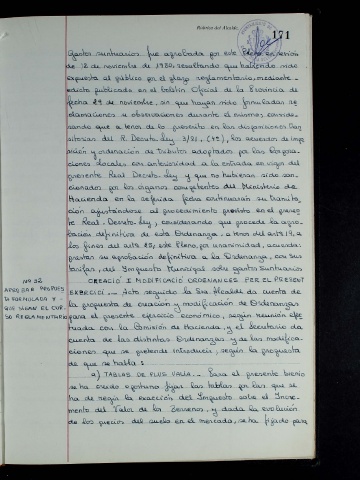 171
Gastos suntuarios, fue aprobada por este Pleno en sesión
de 12 de noviembre de 1980, resultando que habiendo sido
expuesta al público por el plazo reglamentario, mediante
edicto publicado en el Boletín Oficial de la Provincia de
fecha 22 de noviembre, sin que hayan sido formuladas re-
clamaciones u observaciones durante el mismo, conside-
rando que a tenor de lo previsto en las disposiciones tran
sitorias del R. Decreto-Ley 3/81, (1ª), los acuerdos de impo
sición y ordenación de tributos adoptados por las Corpo-
raciones locales con anterioridad a la entrada en vigor del
presente Real Decreto-Ley y que no hubieran sido san-
cionados por los órganos competentes del Ministerio de
Hacienda en la referida fecha continuarán su tramita-
ción ajustándose al procedimiento previsto en el presen-
te Real Decreto-Ley, considerando que procede la apro-
bación definitiva de esta Ordenanza, a tenor del artº 19, a
los fines del artº 25, este Pleno, por unanimidad, acuerda:
prestar su aprobación definitiva a la Ordenanza, con sus
tarifas, del Impuesto Municipal sobre gastos suntuarios
Nº 32
APROBAR PROPUES
TA FORMULADA Y
QUE SIGAN EL CUR-
SO REGLAMENTARIO
CREACIÓ I MODIFICACIÓ ORDENANCES PER EL PRESENT
EXERCICI. - Acto seguido la Sra Alcalde da cuenta de
la propuesta de creación y modificación de Ordenanzas
para el presente ejercicio económico, según reunión efec
tuada con la Comisión de Hacienda, y el Secretario da
cuenta de las distintas Ordenanzas y de las modifica-
ciones que se pretende introducir, según la propuesta
de que se habla:
a) TABLAS DE PLUS VALIA. - Para el presente bienio
se ha creído oportuno fijar las tablas por las que se
ha de regir la exacción del Impuesto sobre el Incre-
mento del Valor de los Terrenos, y dada la evolución
de los precios del suelo en el mercado, se ha fijado para